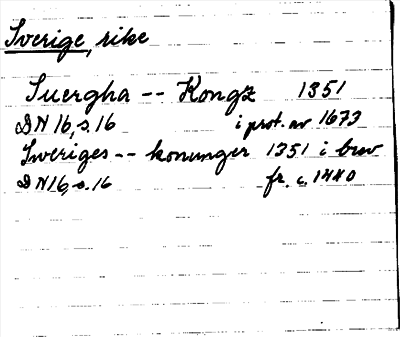 Sverige, rike
Suergha -- Kongz 1351
DN 16, s. 16 i prot. av 1673
Sweriges -- konunger 1351 i brev
DN 16, s. 16 fr. c. 1440